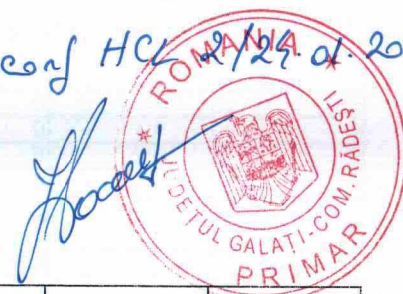 conf HCL 2/24.01.20
ROMANIA
JUDEŢUL GALAŢI-COM. RĂDEŞTI
PRIMAR